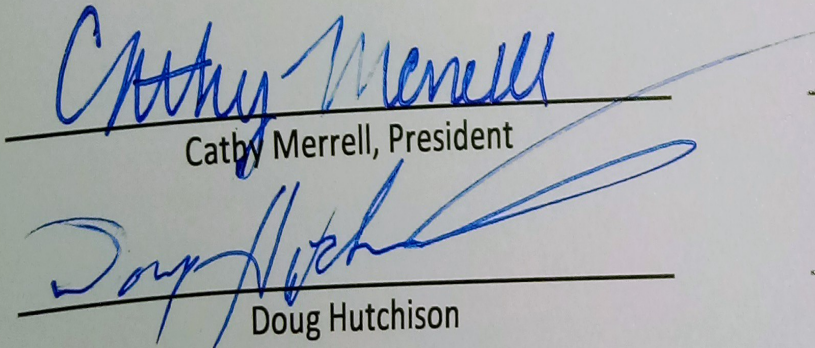 Cathy Merrell
Cathy Merrell, President
Doug Hutch
Doug Hutchison